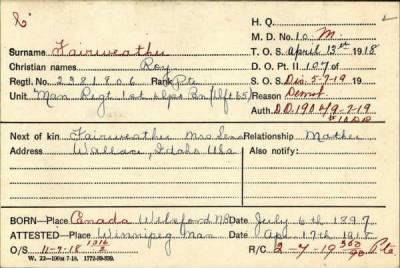 H. Q.
M. D. No. 10 M.
Surname Fairweather
T. O. S. April 13th 1918
Christian names Roy
D. O. Pt. II 107 of
Regtl. No. 2381806 Rank Pte
S. O. S. Dis. 5-7-19 19
Unit Man Regt 1st Depot Bn
Reason Demob.
Auth. D.D. 190 4/9-7-19
Next of kin Fairweather Mrs Relationship Mother
Address Wallace, Idaho Usa Also notify:
BORN—Place Canada Wilsford NB Date July 6th 1897
ATTESTED—Place Winnipeg Man Date Apr. 17th 1918
O/S 11-7-18 R/C 2-7-19 Pte
W. 22—100M 7-18. 1772-39-839.